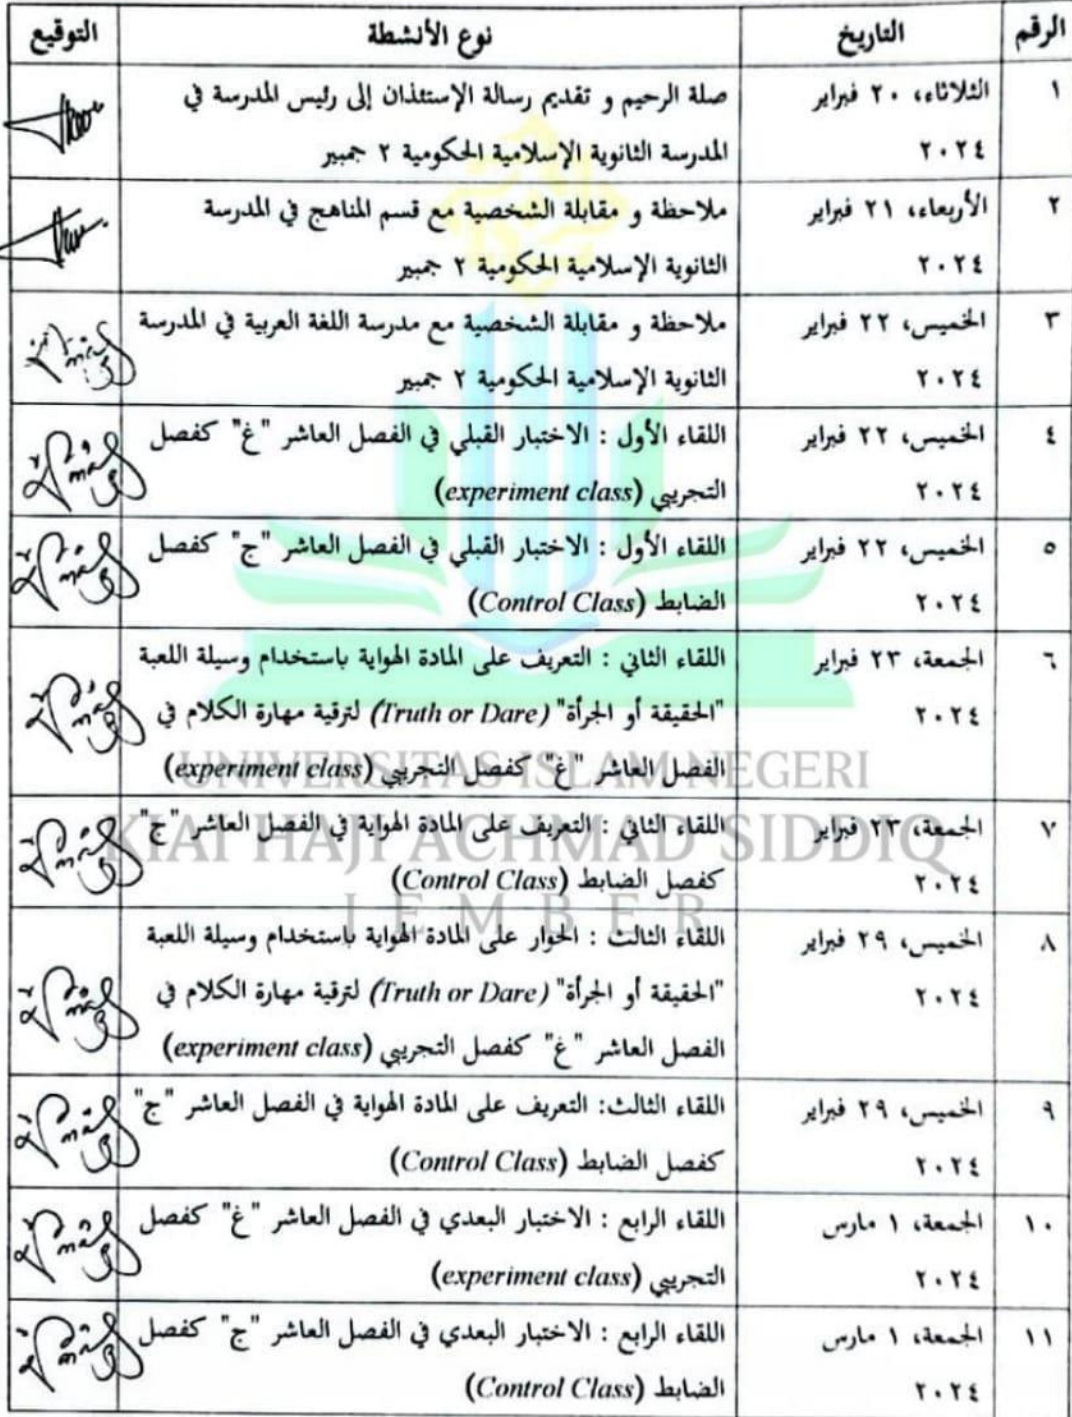 الرقم التاريخ نوع الأنشطة التوقيع
١ الثلاثاء، ٢٠ فبراير صلة الرحيم و تقديم رسالة الإستئذان إلى رئيس المدرسة في
٢٠٢٤ المدرسة الثانوية الإسلامية الحكومية ٢ جمبير
٢ الأربعاء، ٢١ فبراير ملاحظة و مقابلة الشخصية مع قسم المناهج في المدرسة
٢٠٢٤ الثانوية الإسلامية الحكومية ٢ جمبير
٣ الخميس، ٢٢ فبراير ملاحظة و مقابلة الشخصية مع مدرسة اللغة العربية في المدرسة
٢٠٢٤ الثانوية الإسلامية الحكومية ٢ جمبير
٤ الخميس، ٢٢ فبراير اللقاء الأول : الاختبار القبلي في الفصل العاشر "غ" كفصل
٢٠٢٤ التجريبي (experiment class)
٥ الخميس، ٢٢ فبراير اللقاء الأول : الاختبار القبلي في الفصل العاشر "ج" كفصل
٢٠٢٤ الضابط (Control Class)
٦ الجمعة، ٢٣ فبراير اللقاء الثاني : التعريف على المادة الهواية باستخدام وسيلة اللعبة
٢٠٢٤ "الحقيقة أو الجرأة" (Truth or Dare) لترقية مهارة الكلام في
الفصل العاشر "غ" كفصل التجريبي (experiment class)
UNIVERSITAS ISLAM NEGERI
٧ الجمعة، ٢٣ فبراير اللقاء الثاني : التعريف على المادة الهواية في الفصل العاشر "ج"
KIAI HAJI ACHMAD SIDDIQ
٢٠٢٤ كفصل الضابط (Control Class)
JEMBER
٨ الخميس، ٢٩ فبراير اللقاء الثالث : الحوار على المادة الهواية باستخدام وسيلة اللعبة
٢٠٢٤ "الحقيقة أو الجرأة" (Truth or Dare) لترقية مهارة الكلام في
الفصل العاشر "غ" كفصل التجريبي (experiment class)
٩ الخميس، ٢٩ فبراير اللقاء الثالث: التعريف على المادة الهواية في الفصل العاشر "ج"
٢٠٢٤ كفصل الضابط (Control Class)
١٠ الجمعة، ١ مارس اللقاء الرابع : الاختبار البعدي في الفصل العاشر "غ" كفصل
٢٠٢٤ التجريبي (experiment class)
١١ الجمعة، ١ مارس اللقاء الرابع : الاختبار البعدي في الفصل العاشر "ج" كفصل
٢٠٢٤ الضابط (Control Class)